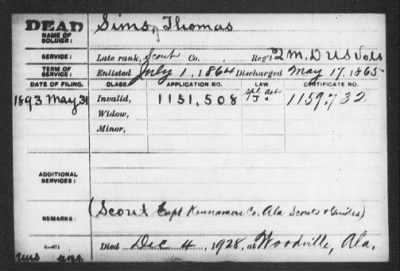 DEAD
NAME OF SOLDIER: Sims, Thomas
SERVICE: Late rank, Scout Co. Reg't 2 M.D US Vols
TERM OF SERVICE: Enlisted July 1, 1864 Discharged May 17, 1865
DATE OF FILING. CLASS. APPLICATION NO. LAW. CERTIFICATE NO.
1893 May 31 Invalid, 1151,508 Spl Act 1159,732
Widow,
Minor,
ADDITIONAL SERVICES:
REMARKS: (Scout Capt Kennamore Co. Ala Scouts & Guides)
Died Dec 4, 1928, at Woodville, Ala.